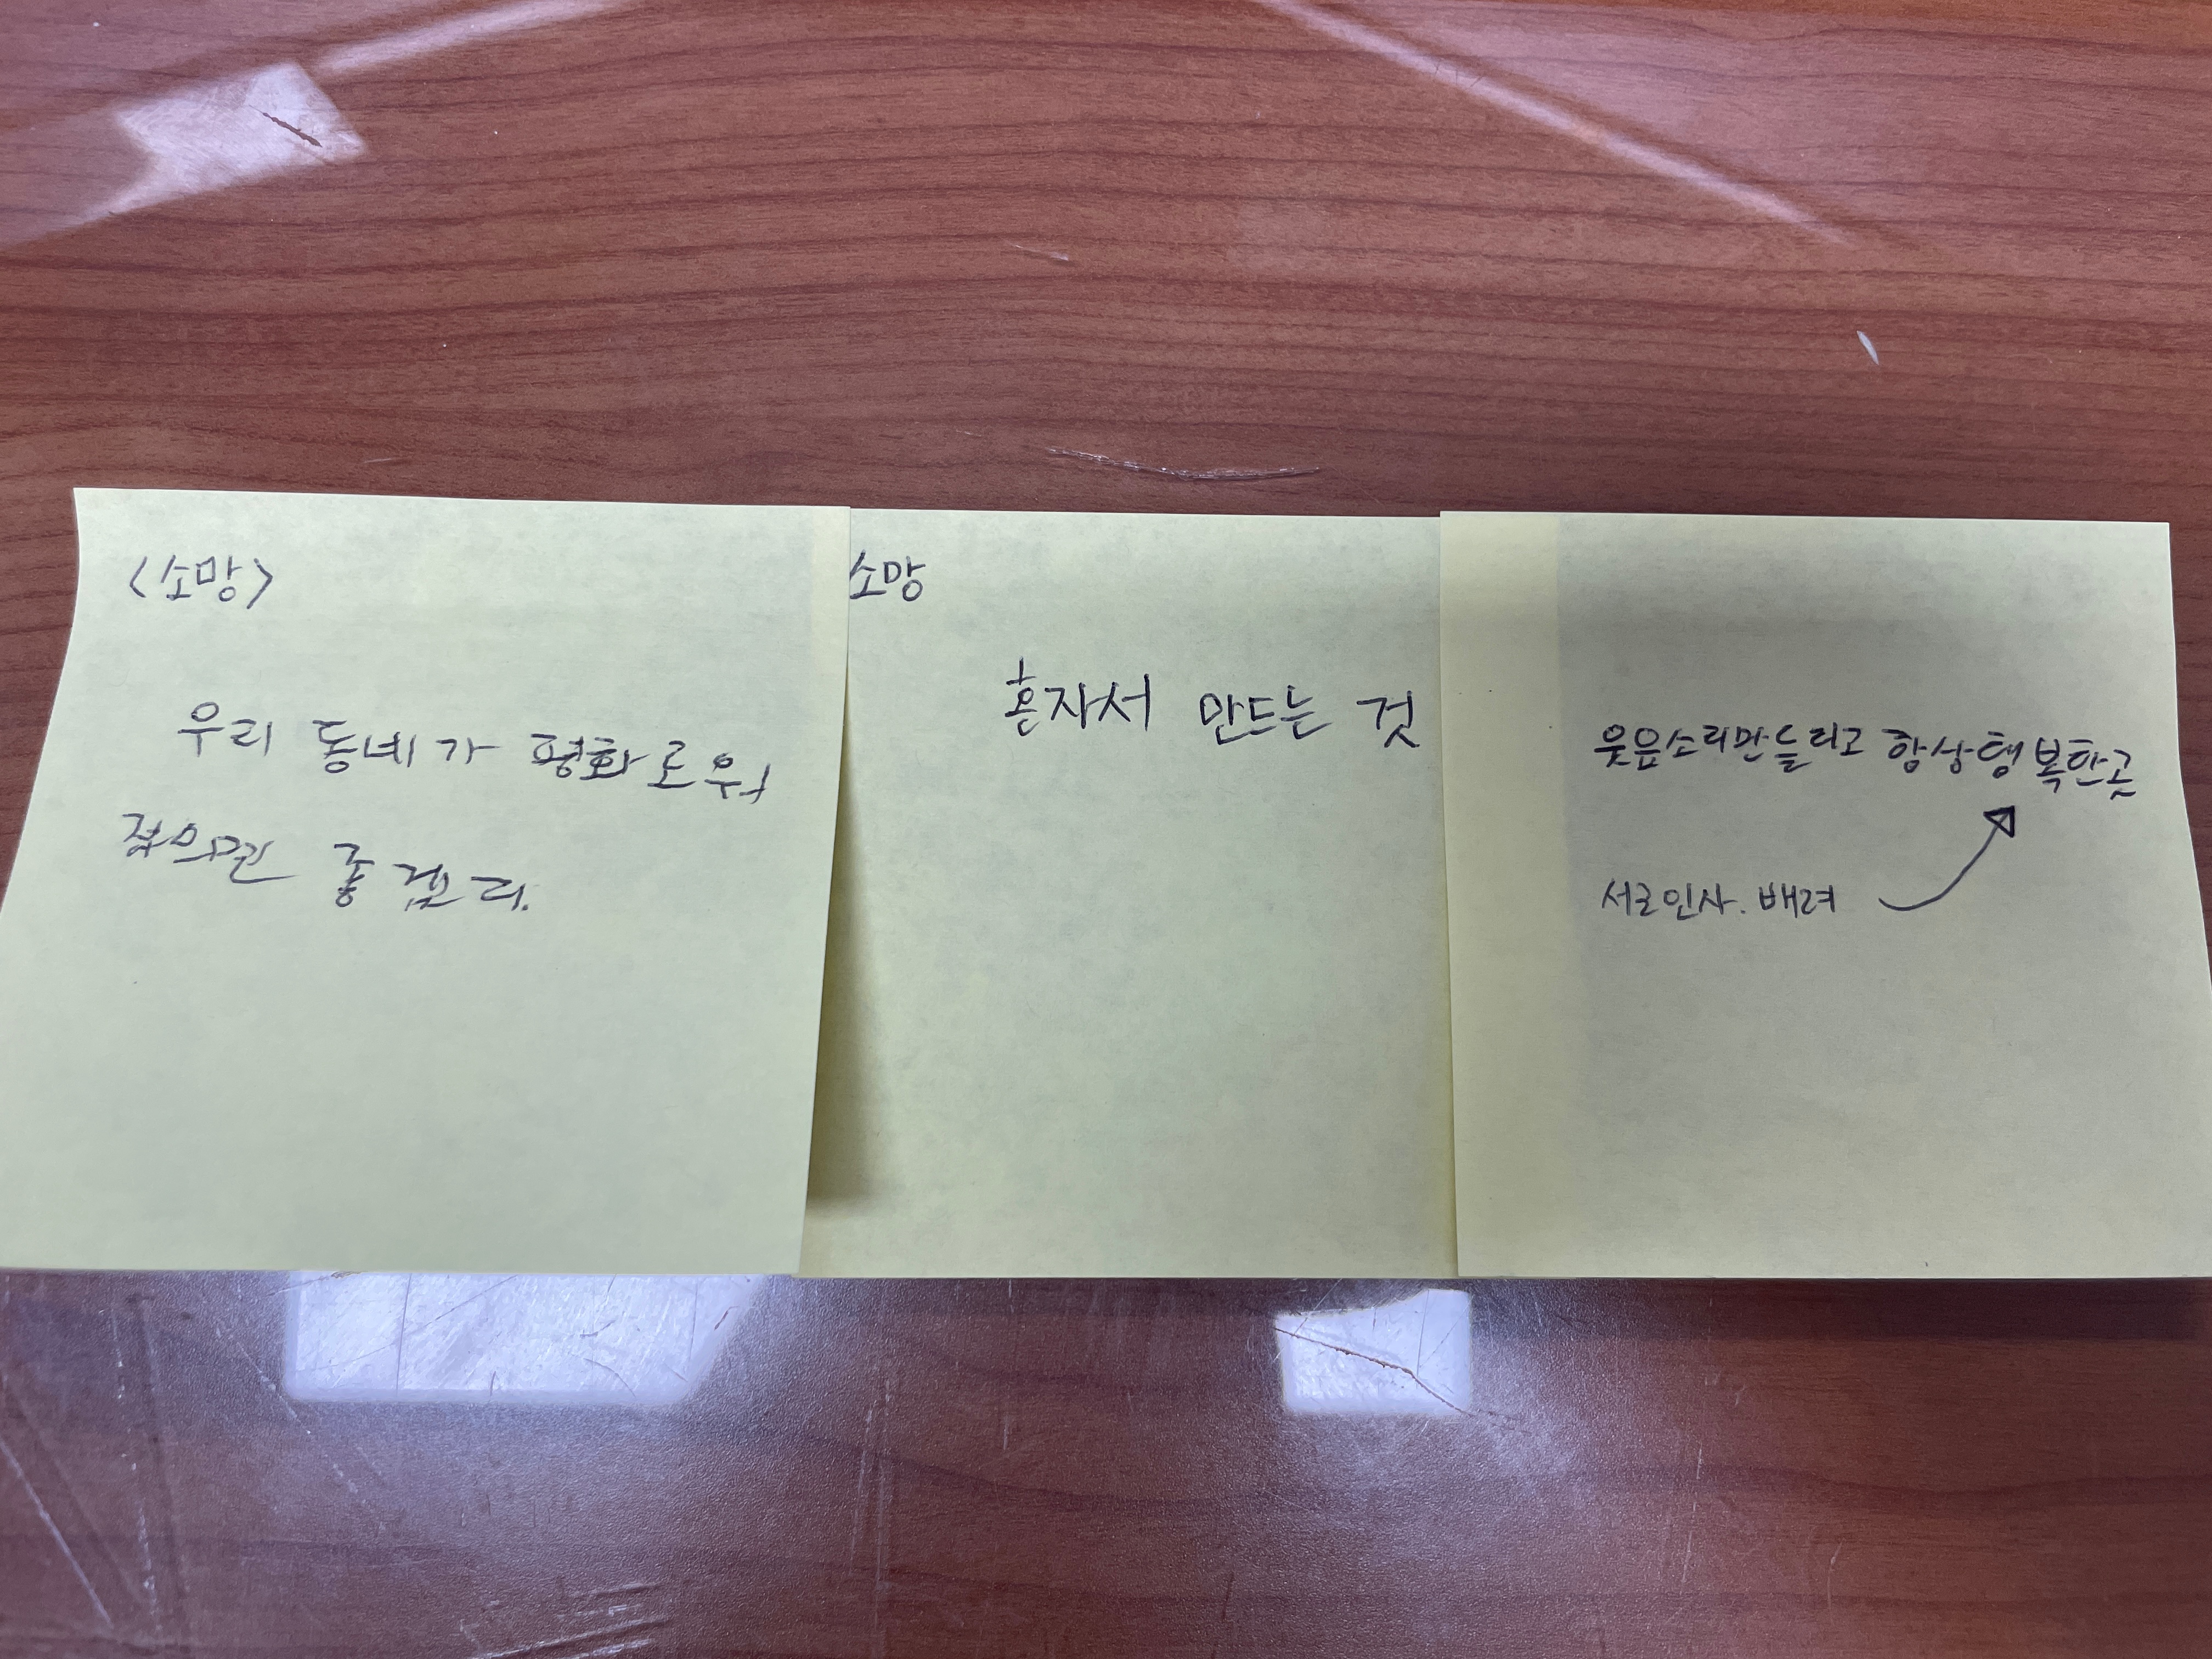 <소망>
우리 동네가 평화로워
졌으면 좋겠다.
소망
혼자서 만드는 것
웃음소리만 들리고 항상 행복한곳
서로인사. 배려